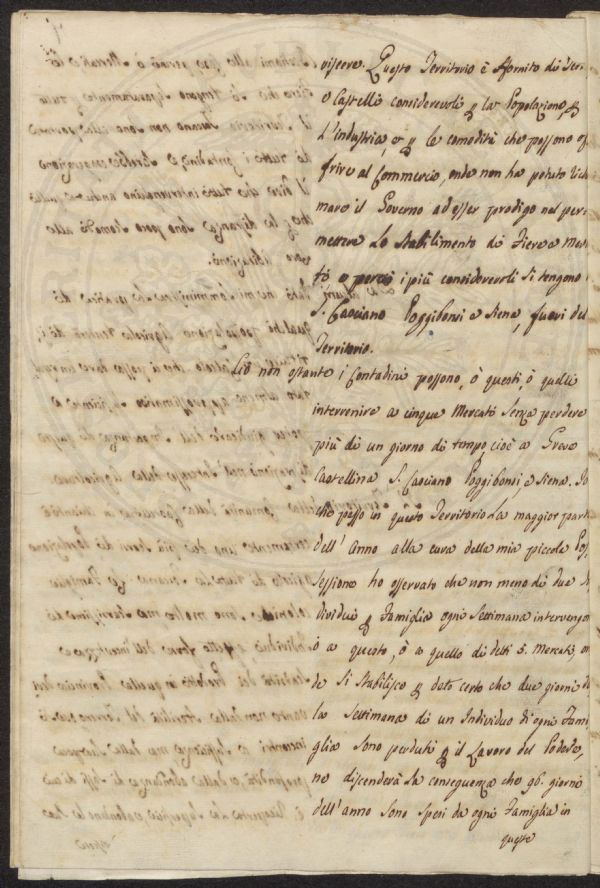 viscere. Questo Territorio è fornito di Ter-
e Castelli considerevoli p la Popolazione, p
L'industria, e p le comodità che possono of
frire al Commercio, onde non ha potuto Rich
mare il Governo ad esser prodigo nel per-
mettere Lo Stabilimento di Fiere e Mer-
ti, e perciò i più considerevoli si tengono
S. Casciano Poggibonsi e Siena, fuori del
Territorio.
Ciò non ostante i Contadini possono, ò questi, ò quelli
intervenire a cinque Mercati Senza perdere
più di un giorno di tempo cioè a Greve
Castellina S. Casciano Poggibonsi, e Siena. Io
che passo in questo Territorio La maggior part
dell'Anno alla cura della mia piccola Pos
sessione ho osservato che non meno di due I
dividui p Famiglia ogni Settimana intervengo
ò a questo, ò a quello di detti 5. Mercati, on
de Si Stabilisce p dato certo che due giorni del
la Settimana di un Individuo di ogni Fami
glia Sono perduti p il Lavoro del Podere,
ne discenderà La conseguenza che 96. giorni
dell'anno Sono Spesi da ogni Famiglia in
queste